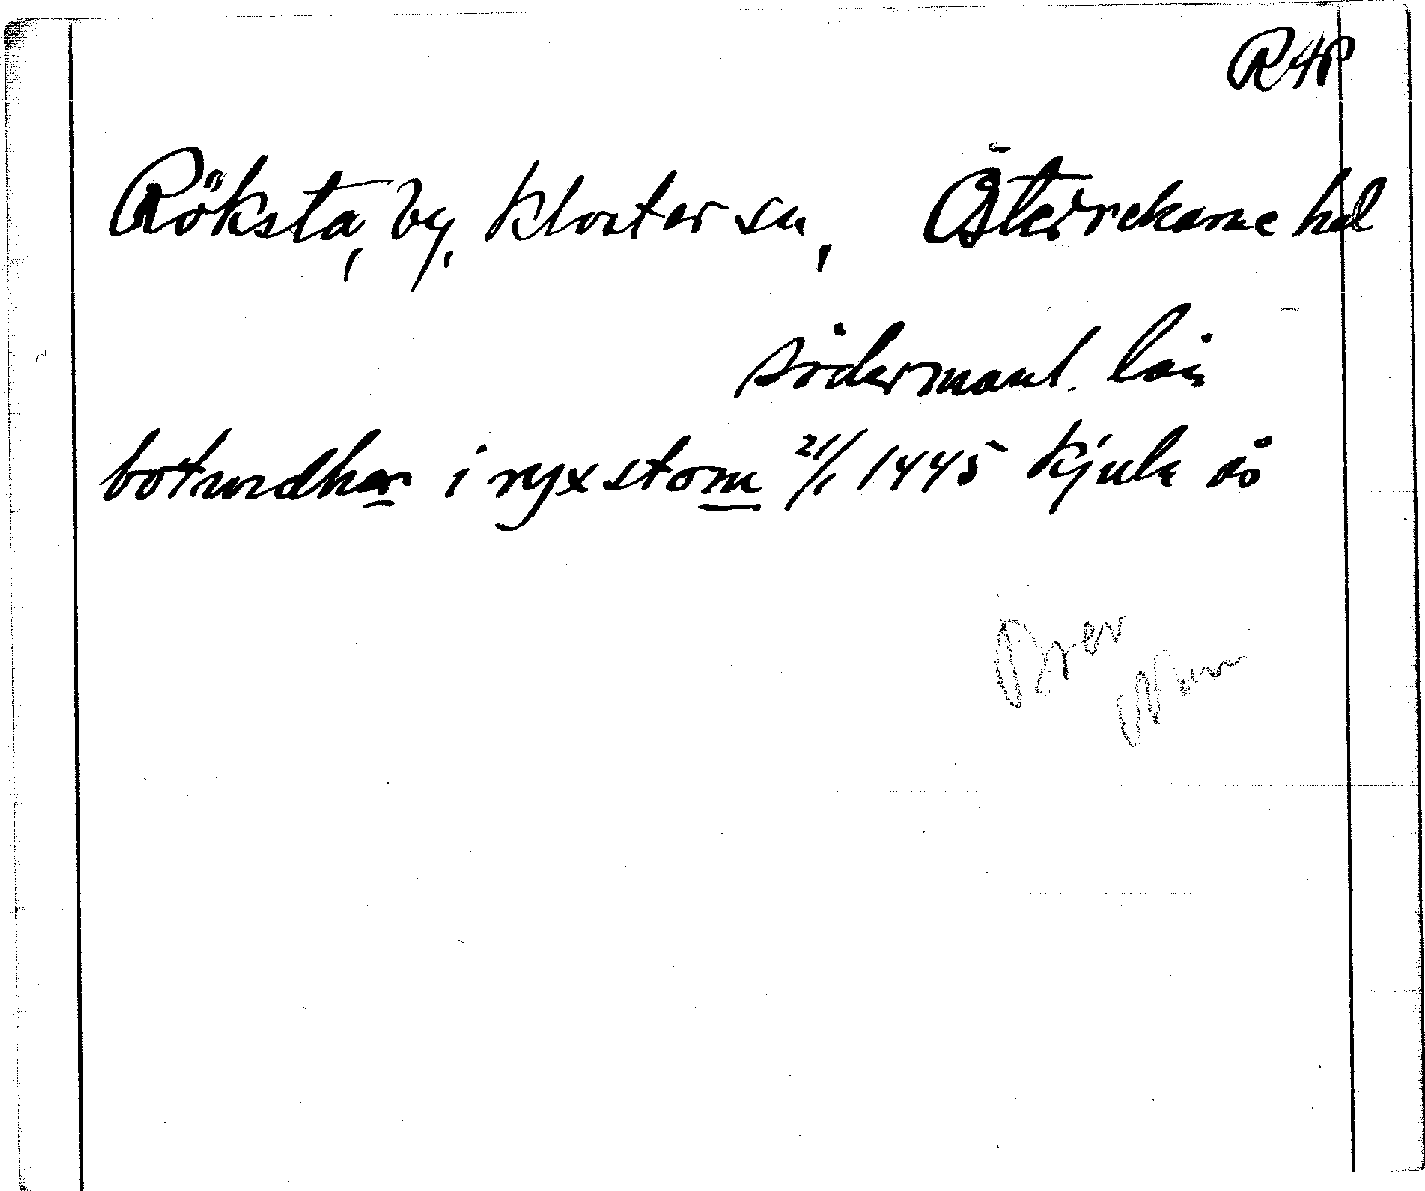 RAP
Röksta, by, Kloster sn, Österrekarne hd
Södermanl. län
botwndhar i ryxstom 21/1 1445 Kjula ö
Brev